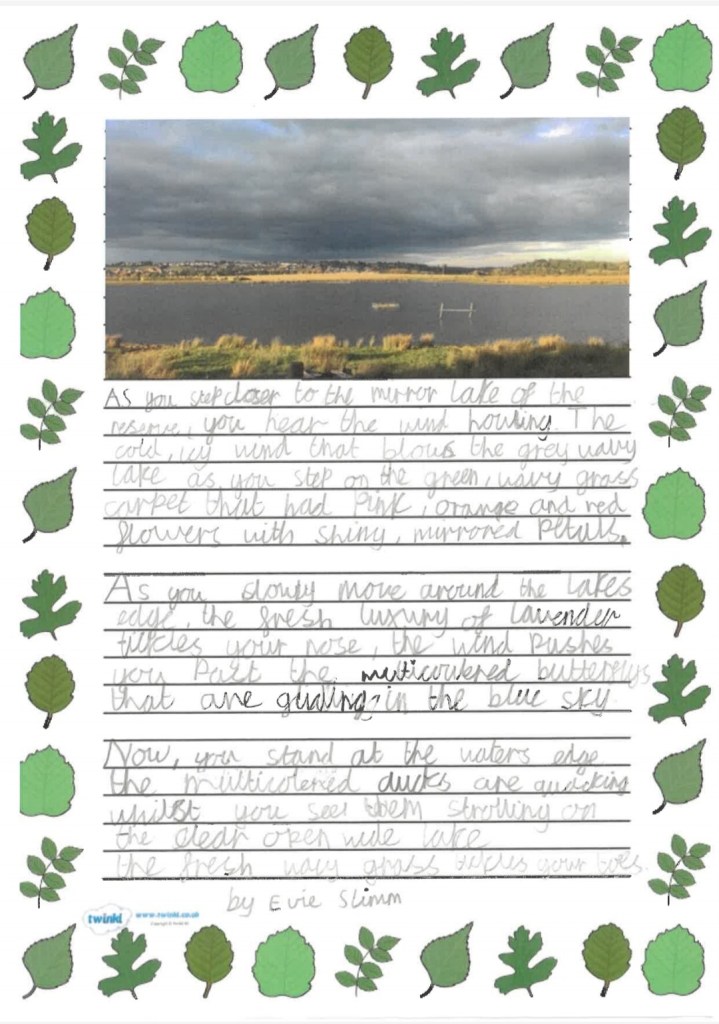 As you step closer to the mirror lake of the
reserve, you hear the wind howling. The
cold, icy wind that blows the grey wavy
lake as you step on the green, wavy grass
carpet that had Pink, orange and red
flowers with shiny, mirrored Petals.
As you slowly move around the lakes
edge, the fresh luxury of lavender
tickles your nose, the wind pushes
you Past the multicoulered butterflys
that are guding in the blue sky.
Now, you stand at the waters edge
the multicolered ducks are quacking
whilst you see them strolling on
the clear open wide lake
the fresh wavy grass tickles your toes.
by Evie Slimm
twinkl www.twinkl.co.uk